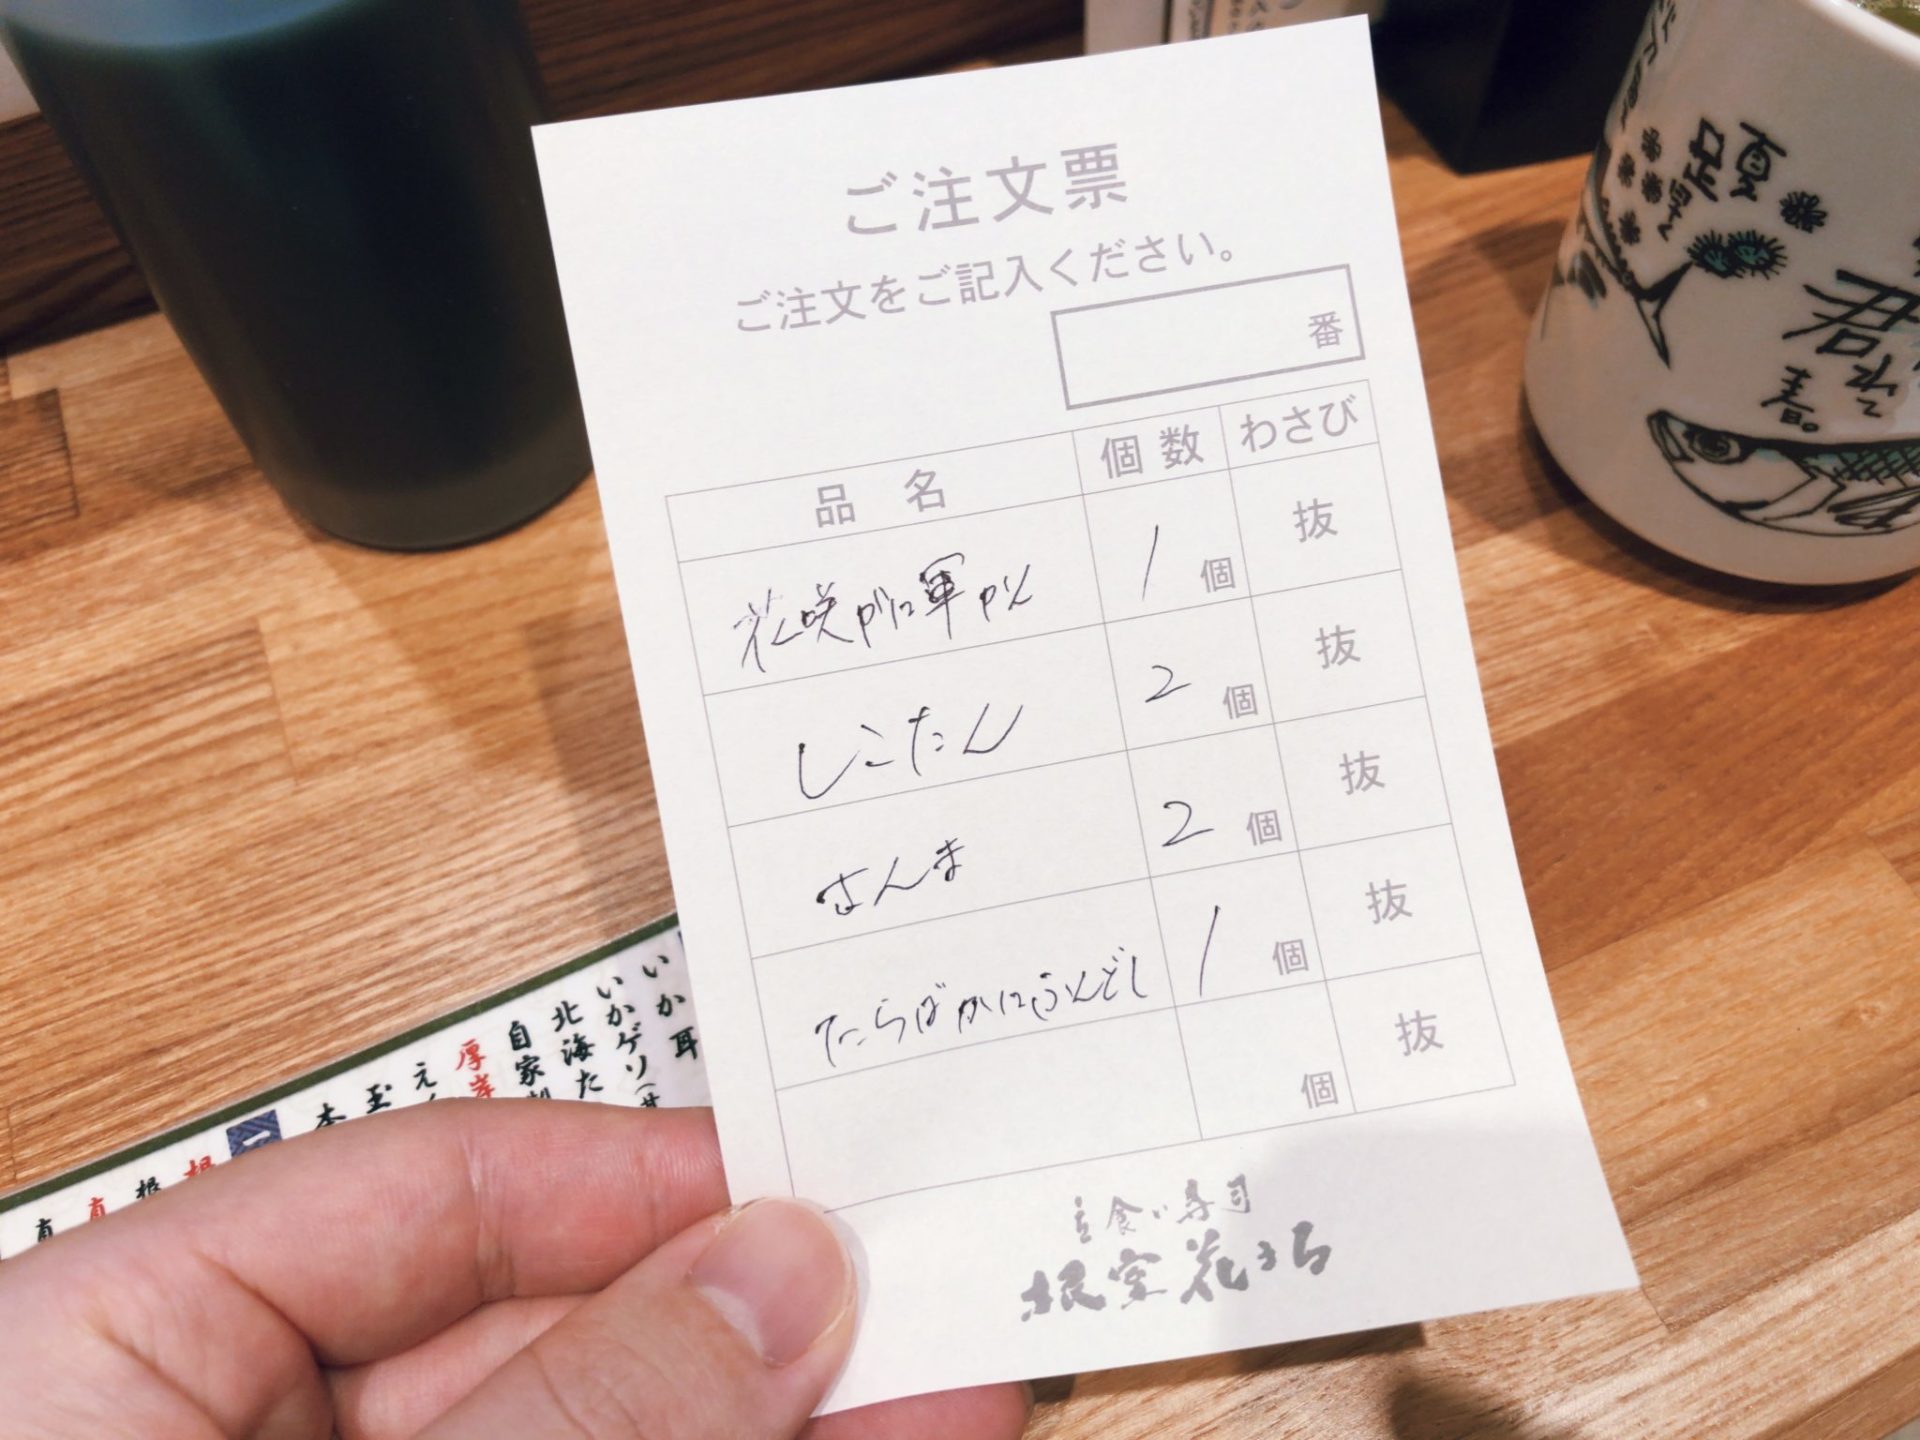 ご注文票
ご注文をご記入ください。
番
品名 個数 わさび
花咲がに軍かん 1個 抜
しこたん 2個 抜
さんま 2個 抜
たらばかにふんどし 1個 抜
個 抜
立食い寿司
根室花まる
いか耳
いかゲソ(甘
北海た
自家製
厚岸
え
玉
本
一
根
根
真
真
君
春。